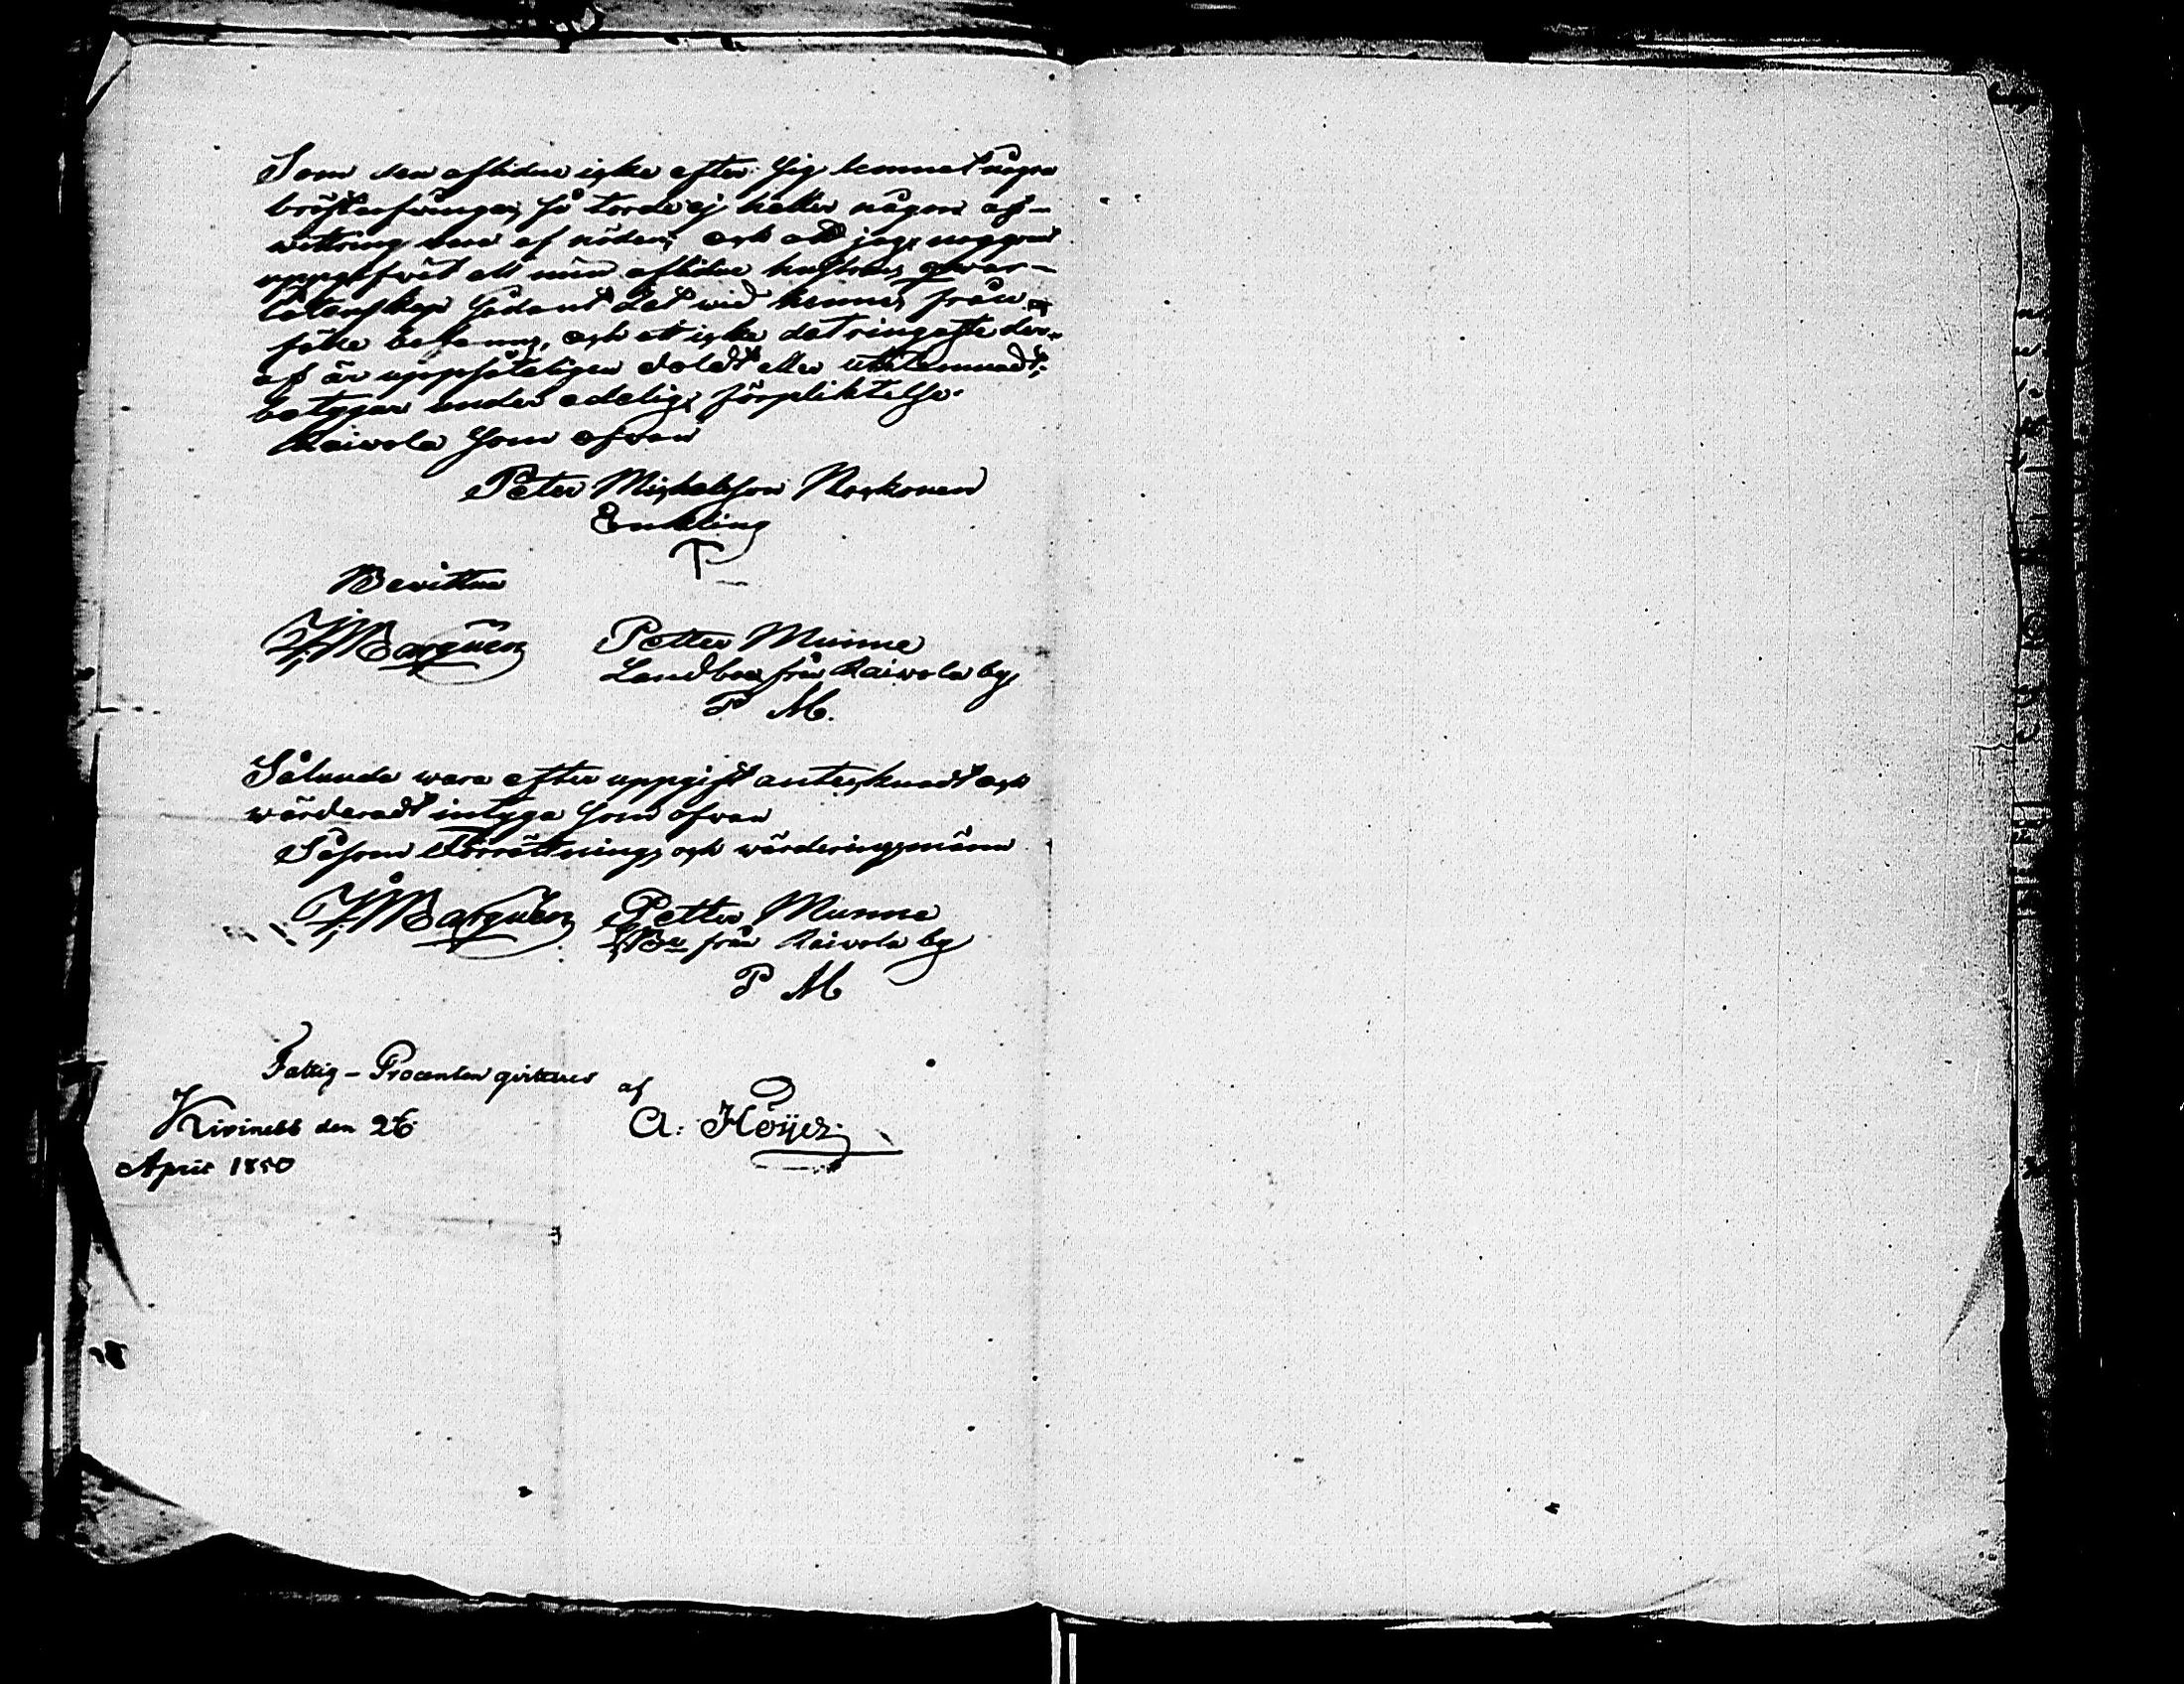 Som den aflidne icke efter sig lemnat några
bröstarfvingar, så torde ej heller någon af-
wittring vara af nöden; och att jag noggrant
uppgifvit all min aflidne hustrus qwar-
låtenskap sådant det wid hennes frånn
fälle befanns, och at icke det ringaste der-
af är uppsåteligen doldt eller utelemnadt;
betygar under edelig förpliktelse.
Raivola som ofvan
Peter Michelsson Moskonen
Enkling
Bevittna
Petter Munne
Landboe från Raivola by
P M.
Sålunda wara efter uppgift antecknadt och
wärderadt intyga som ofvan
Såsom Förrättnings och wärderingsmänn
Petter Munne
från Raivola by
P M
Fattig-Procenten qvitteras af
Kivineb den 26
A. Höijer
April 1850